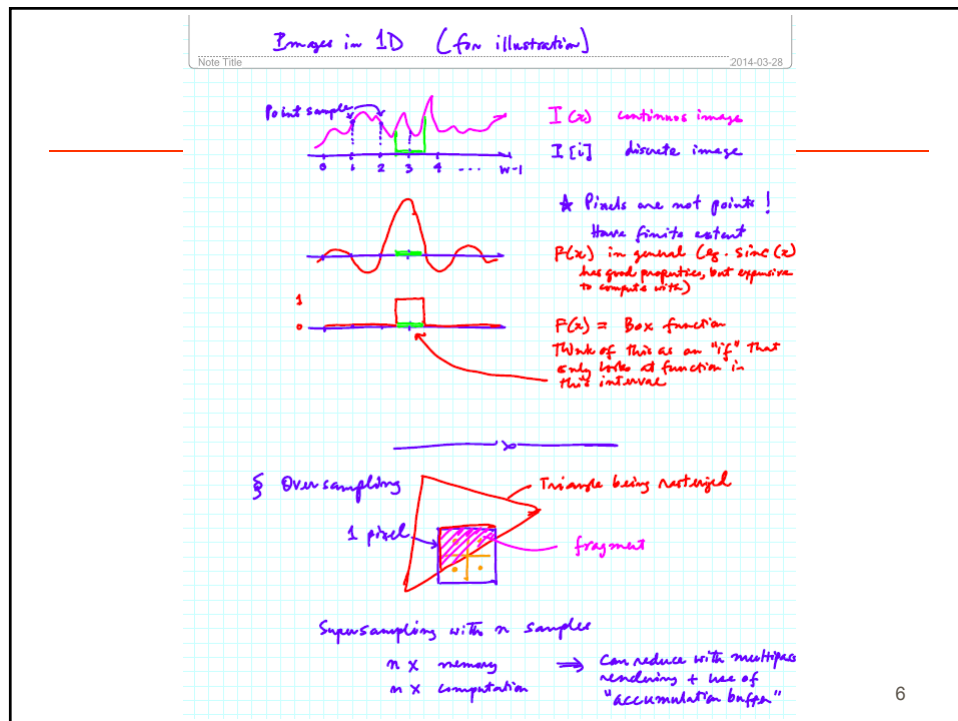 Images in 1D (for illustration)
Note Title
2014-03-28
Point sample
I(x) continuos image
I[i] discrete image
0 1 2 3 4 ... W-1
★ Pixels are not points!
Have finite extent
F(x) in general (eg. sinc(x)
has good properties, but expensive
to compute with)
1
0
F(x) = Box function
Think of this as an "if" that
only looks at function in
this interval
§ Oversampling
Triangle being rasterized
1 pixel
fragment
Supersampling with n samples
n x memory
n x computation
⇒ Can reduce with multipass
rendering + use of
"accumulation buffer"
6